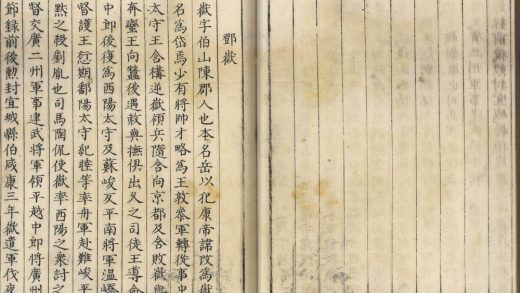 鄧嶽
嶽字伯山陳郡人也本名岳以犯康帝諱改爲嶽
名爲岱焉少有將帥才略爲王敦參軍轉從事中
太守王含構逆嶽領兵隨含向京都及含敗嶽
奔蠻王向蠶後遇赦與撫俱出久之司徒王導命
中郎後復爲西陽太守及蘇峻反平南將軍溫嶠
督護王愆期鄱陽太守紀睦等率舟軍赴難峻平
默之殺劉胤也司馬陶侃使嶽率西陽之衆討之
督交廣二州軍事建武將軍領平越中郎將廣州
節錄前後勳封宜城縣伯咸康三年嶽遣軍伐夜